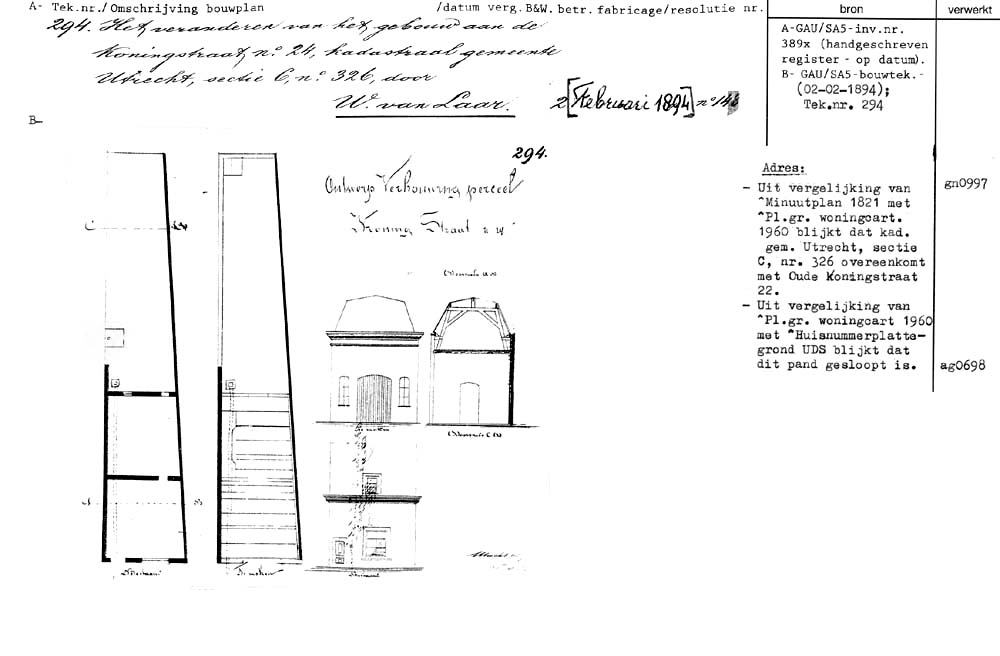 A- Tek.nr./Omschrijving bouwplan /datum verg.B&W.betr.fabricage/resolutie nr.
bron
verwerkt
294. Het veranderen van het gebouw aan de
Koningstraat, no. 24, kadastraal gemeente
Utrecht, sectie C, no. 326, door
W. van Laar.
2 [Februari 1894] no
A-GAU/SA5-inv.nr.
389x (handgeschreven
register - op datum).
B- GAU/SA5-bouwtek.-
(02-02-1894);
Tek.nr. 294
B-
294.
Ontwerp Verbouwing perceel
Koning Straat
Adres:
- Uit vergelijking van
^Minuutplan 1821 met
^Pl.gr. woningcart.
1960 blijkt dat kad.
gem. Utrecht, sectie
C, nr. 326 overeenkomt
met Oude Koningstraat
22.
gn0997
- Uit vergelijking van
^Pl.gr. woningcart 1960
met ^Huisnummerplatte-
grond UDS blijkt dat
dit pand gesloopt is.
ag0698
C
A
B